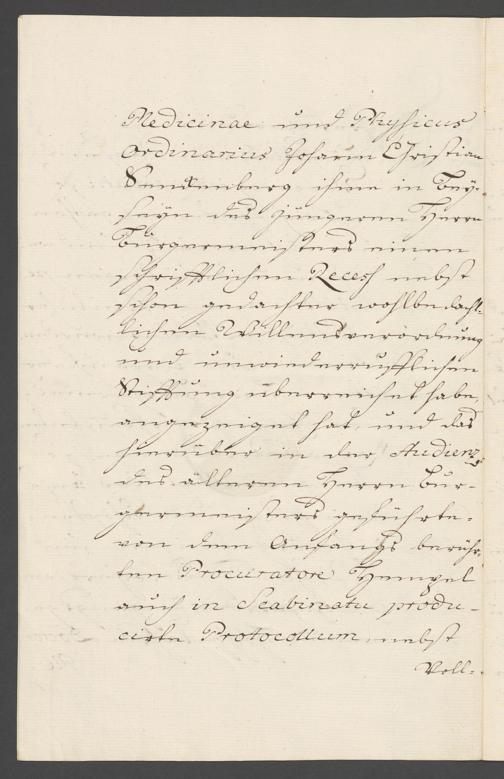 Medicinae und Physicus
Ordinarius Johann Christian
Senckenberg ihme in Bey-
seyn des jüngeren Herrn
Burgermeisters einen
schrifftlichen Recess nebst
schon gedachter wohlbedächt-
lichen Willensverordnung
und unwiederrufflichen
Stifftung überreichet habe,
angezeiget hat, und das
hierüber in der Audienz
des älteren Herrn Bur-
germeisters geführte,
von dem Anfangs berühr-
ten Procuratore Hempel
auch in Scabinatu produ-
cirte Protocollum, nebst
Voll-